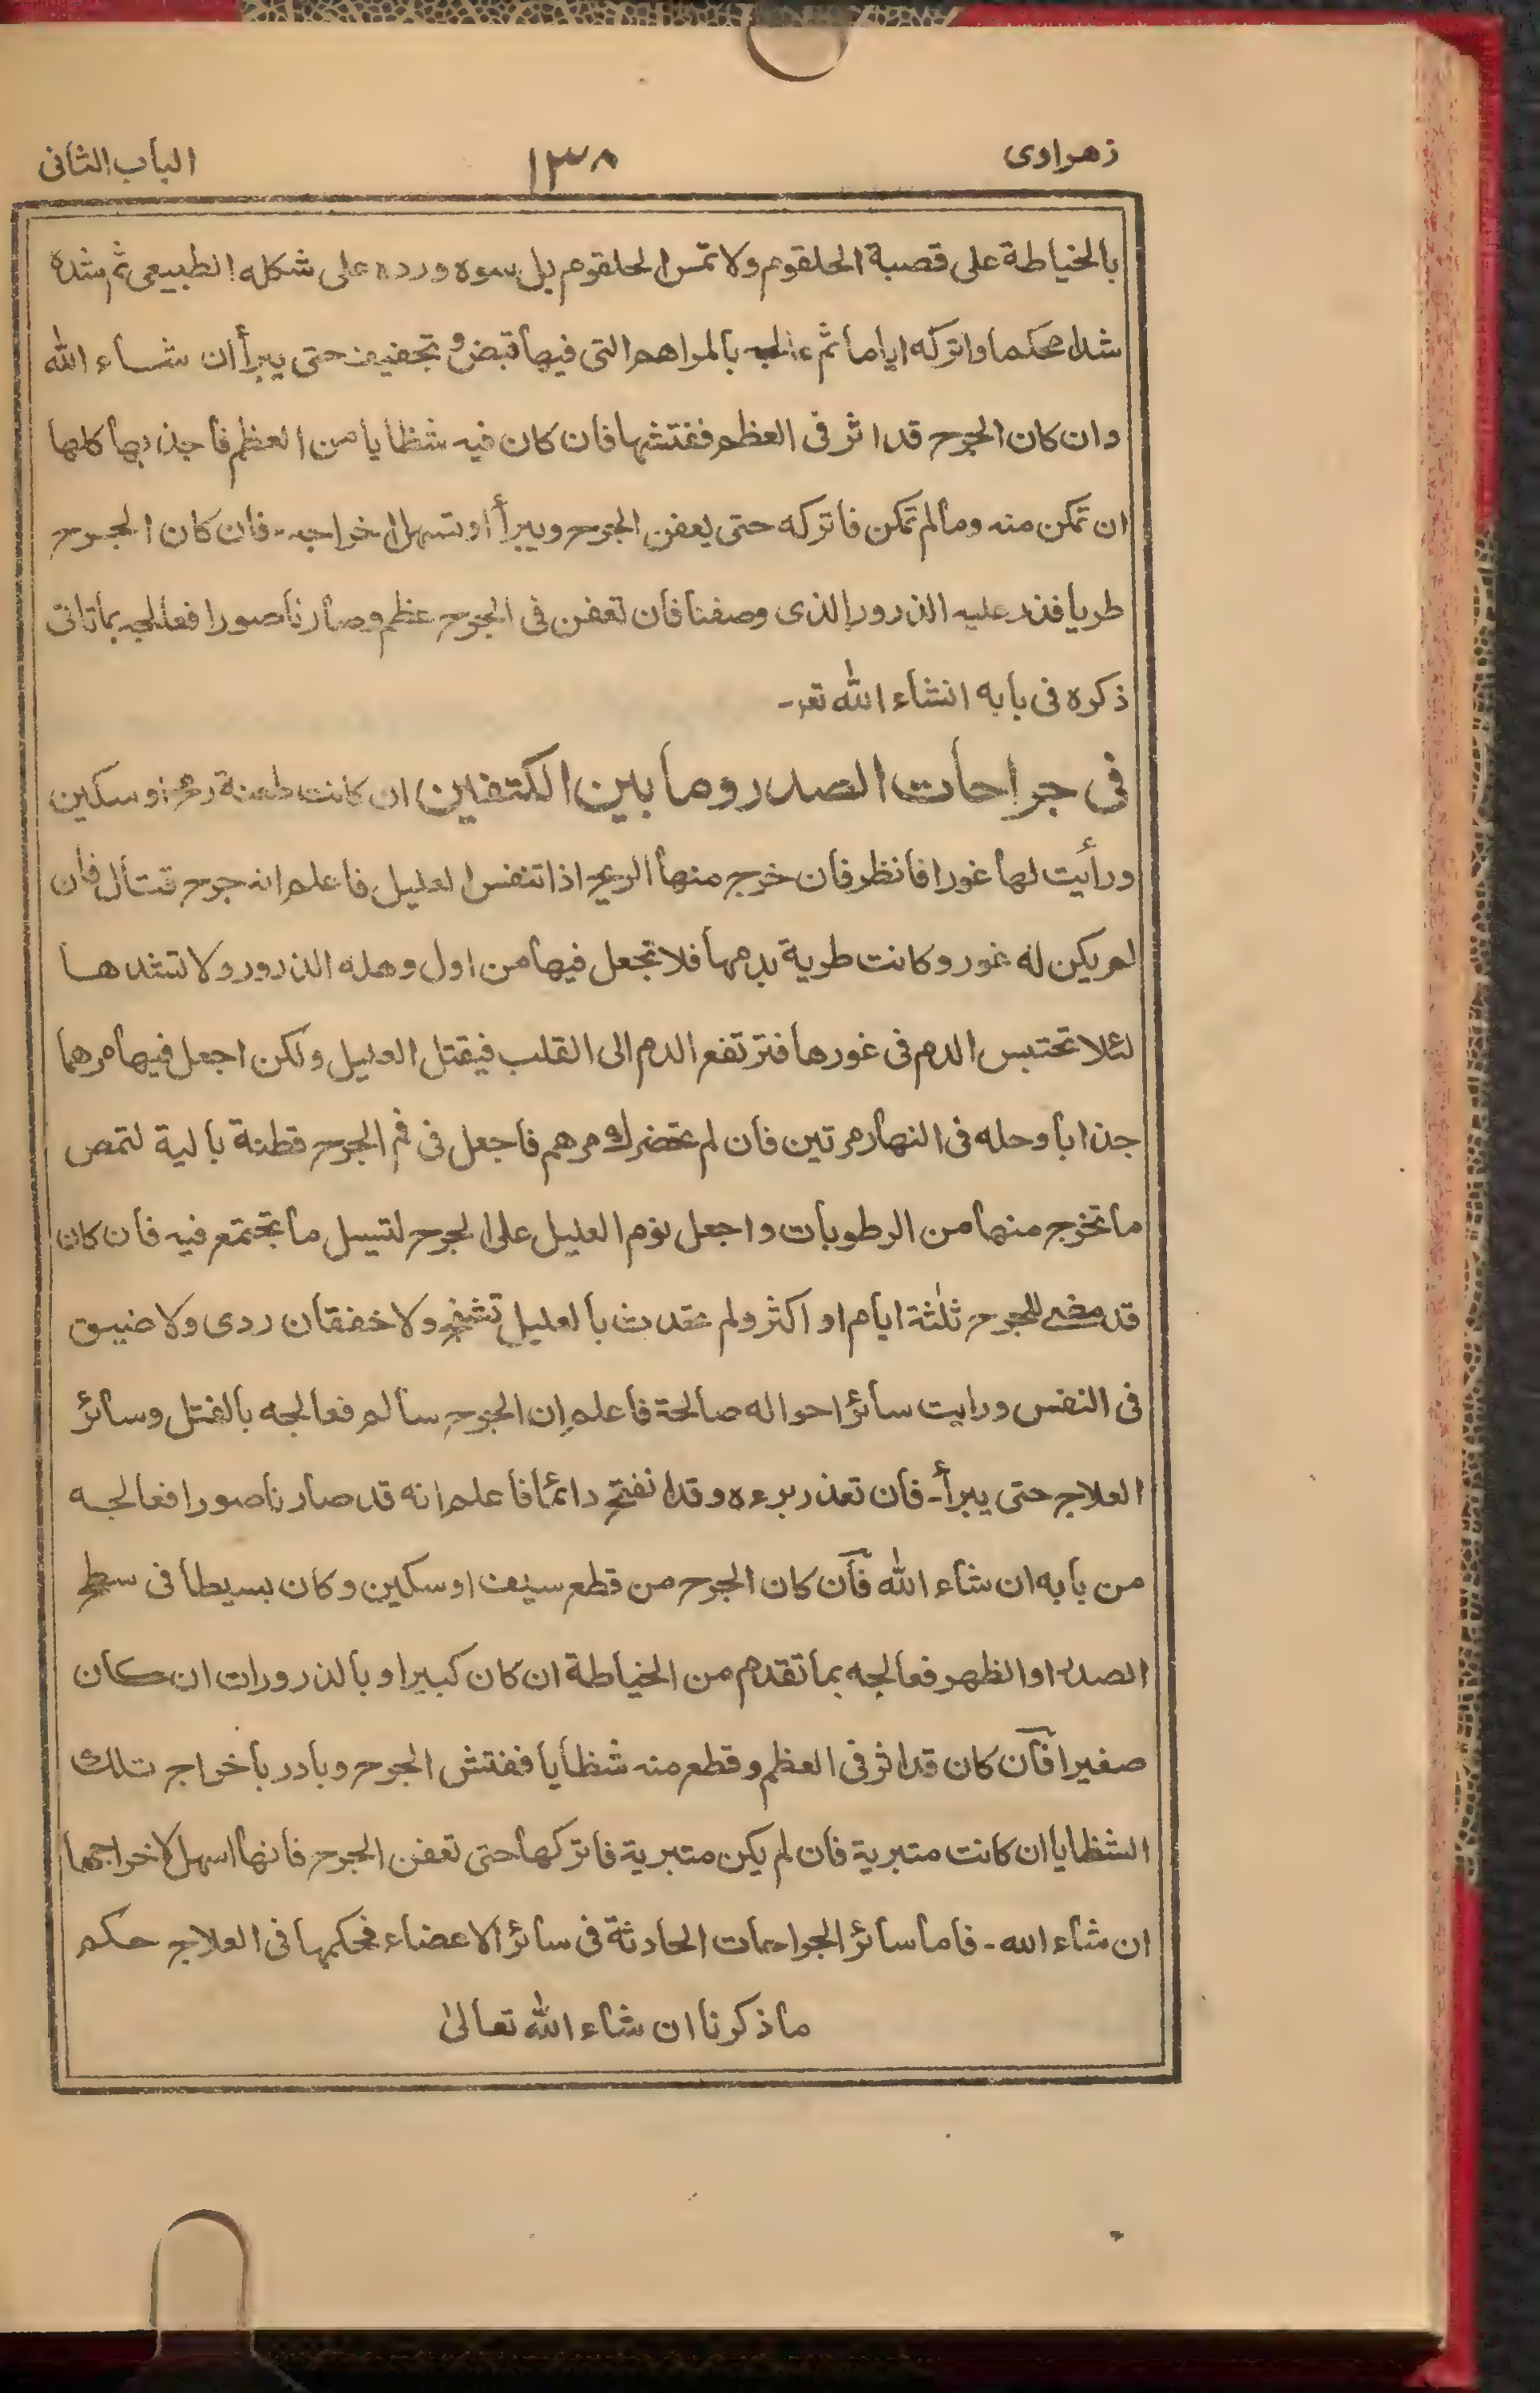 زهراوی ١٣٨ الباب الثانی
بالخياطة على قصبة الحلقوم ولا تمس الحلقوم بل سوه ورده على شكله الطبيعى ثم شده
شدا محكما واتركه اياما ثم عالجه بالمراهم التى فيها قبض و تجفيف حتى يبرأ ان شاء الله
وان كان الجرح قد اثر فى العظم ففتشها فان كان فيه شظايا من العظم فاجذبها كلها
ان تمكن منه ومالم تمكن فاتركه حتى يعفن الجرح ويبرأ او تسهل اخراجه - فان كان الجرح
طريا فذر عليه الذرور الذى وصفنا فان تعفن فى الجرح عظم وصار ناصورا فعالجه بماتاتى
ذكره فى بابه انشاء الله تعه -
فى جراحات الصدر وما بين الكتفين ان كانت طعنة رمح او سكين
ورأيت لها غورا فانظر فان خرج منها الريح اذا تنفس العليل فاعلم انه جرح قتال فان
لم يكن له غور وكانت طرية بدمها فلا تجعل فيها من اول وهله الذرور ولا تشدها
لئلا تحتبس الدم فى غورها فترتفع الدم الى القلب فيقتل العليل ولكن اجعل فيها مرهما
جذابا وحله فى النهار مرتين فان لم تحضرك مرهم فاجعل فى فم الجرح قطنة بالية لتمص
ما تخرج منها من الرطوبات واجعل نوم العليل على الجرح لتسيل ما تجتمع فيه فان كان
قد مضى للجرح ثلثة ايام او اكثر ولم تحدث بالعليل تشنج ولا خفقان ردى ولا ضيق
فى النفس ورايت سائر احواله صالحة فاعلم ان الجرح سالم فعالجه بالفتل وسائر
العلاج حتى يبرأ - فان تعذر برءه وقد انفتح دائما فاعلم انه قد صار ناصورا فعالجه
من بابه ان شاء الله فان كان الجرح من قطع سيف او سكين وكان بسيطا فى سطح
الصدر او الظهر فعالجه بما تقدم من الخياطة ان كان كبيرا و بالذرورات ان كان
صغيرا فان كان قد اثر فى العظم وقطع منه شظايا ففتش الجرح وبادر باخراج تلك
الشظايا ان كانت متبرية فان لم يكن متبرية فاتركها حتى تعفن الجرح فانها اسهل لاخراجها
ان شاء الله - فاما سائر الجراحات الحادثة فى سائر الاعضاء فحكمها فى العلاج حكم
ما ذكرنا ان شاء الله تعالىٰ